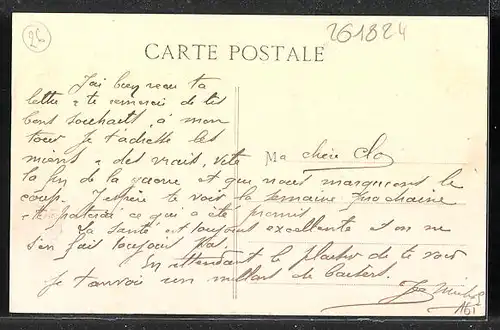 26
261824
CARTE POSTALE
J'ai bien reçu ta
lettre & te remercie de tes
bons souhaits, à mon
tour je t'adresse les
miens & des vrais, vite
Ma chère Clo
la fin de la guerre et que nous marquions le
coup. J'espère te voir la semaine prochaine
& te porterai ce qui a été promis
La santé est toujours excellente et on ne
s'en fait toujours pas.
En attendant le plaisir de te voir
je t'envoie un millier de baisers.